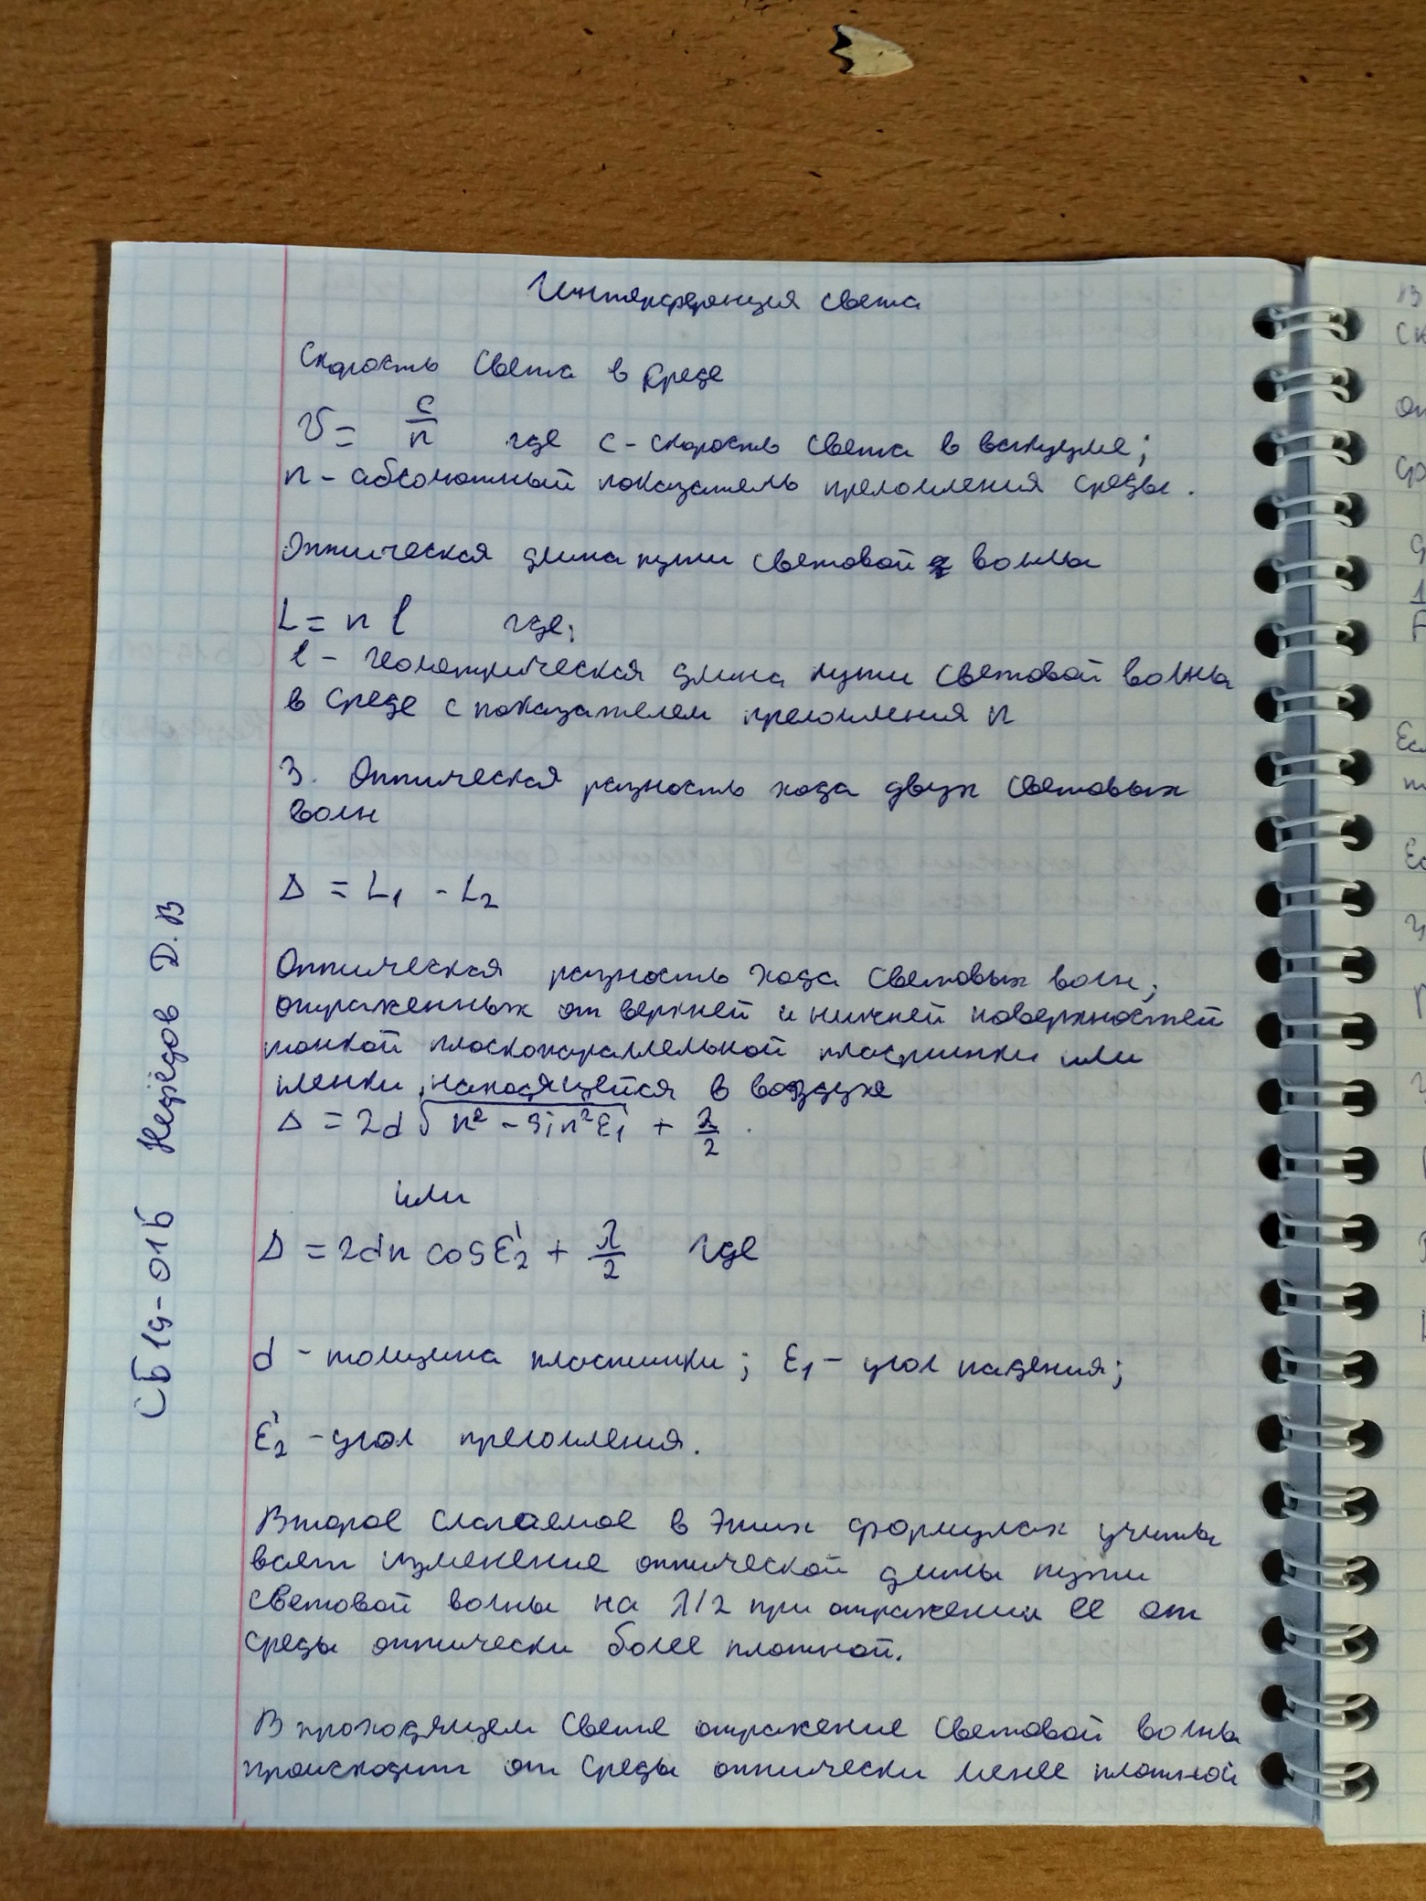 Интерференция света
Скорость света в среде
υ = c/n где c - скорость света в вакууме;
n - абсолютный показатель преломления среды.
Оптическая длина пути световой волны
L = n l где:
l - геометрическая длина пути световой волны
в среде с показателем преломления n
3. Оптическая разность хода двух световых
волн
Δ = L₁ - L₂
Оптическая разность хода световых волн,
отраженных от верхней и нижней поверхностей
тонкой плоскопараллельной пластинки или
пленки, находящейся в воздухе
Δ = 2d √(n² - sin²ε₁) + λ/2.
или
Δ = 2dn cos ε₂' + λ/2 где
d - толщина пластинки; ε₁ - угол падения;
ε₂' - угол преломления.
Второе слагаемое в этих формулах учиты
вает изменение оптической длины пути
световой волны на λ/2 при отражении ее от
среды оптически более плотной.
В проходящем свете отражение световой волны
происходит от среды оптически менее плотной
СБ19-01Б Д.В